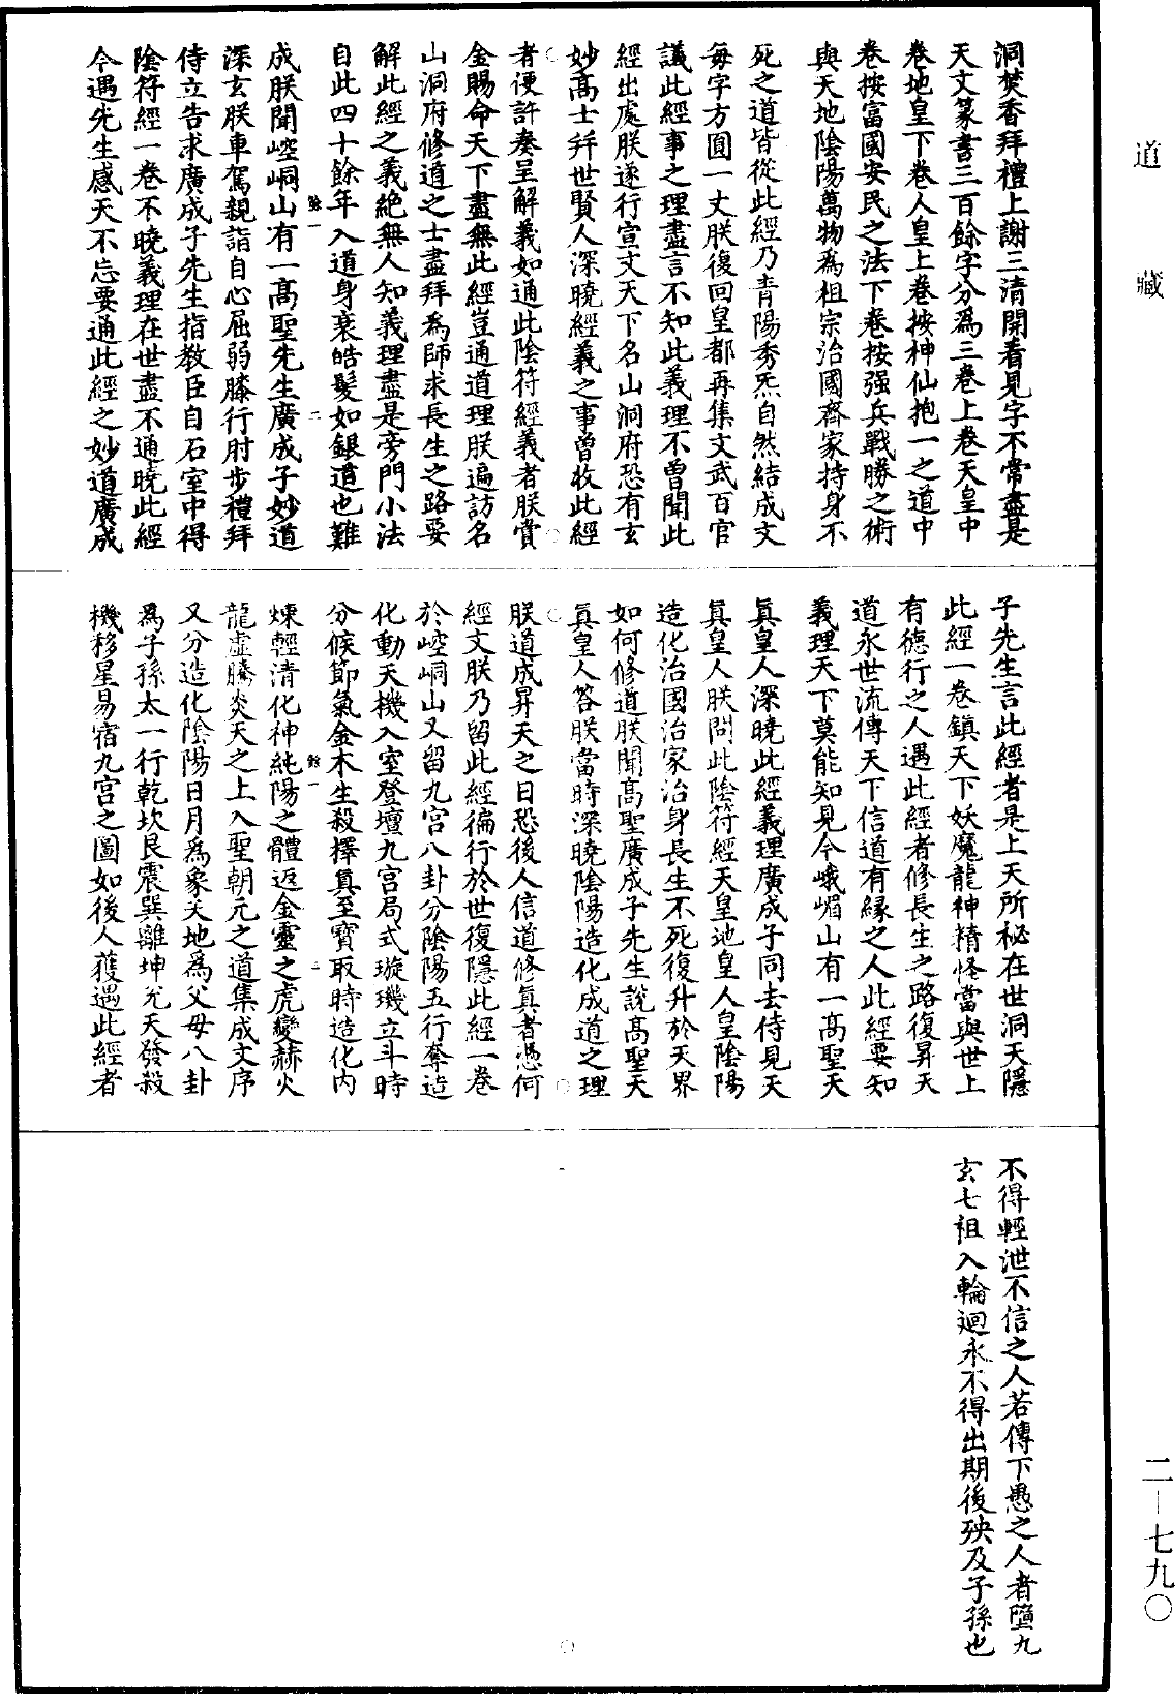 道藏
洞焚香拜禮上謝三清開看見字不常盡是
天文篆書三百餘字分爲三卷上卷天皇中
卷地皇下卷人皇上卷按神仙抱一之道中
卷按富國安民之法下卷按强兵戰勝之術
與天地陰陽萬物為祖宗治國齊家持身不
死之道皆從此經乃青陽秀炁自然結成文
每字方圓一丈朕復回皇都再集文武百官
議此經事之理盡言不知此義理不曾聞此
經出處朕遂行宣文天下名山洞府恐有玄
妙高士并世賢人深曉經義之事曾收此經
者便許奏呈解義如通此陰符經義者朕賞
金賜命天下盡無此經豈通道理朕遍訪名
山洞府修道之士盡拜爲師求長生之路要
解此經之義絶無人知義理盡是旁門小法
自此四十餘年入道身衰皓髮如銀道也難
餘一 二
成朕聞崆峒山有一高聖先生廣成子妙道
深玄朕車駕親詣自心屈弱膝行肘步禮拜
侍立告求廣成子先生指教臣自石室中得
陰符經一卷不曉義理在世盡不通曉此經
今遇先生感天不忘要通此經之妙道廣成
子先生言此經者是上天所祕在世洞天隱
此經一卷鎮天下妖魔龍神精怪當與世上
有德行之人遇此經者修長生之路復昇天
道永世流傳天下信道有緣之人此經要知
義理天下莫能知見今峨嵋山有一高聖天
真皇人深曉此經義理廣成子同去侍見天
真皇人朕問此陰符經天皇地皇人皇陰陽
造化治國治家治身長生不死復升於天界
如何修道朕聞高聖廣成子先生說高聖天
真皇人答朕當時深曉陰陽造化成道之理
朕道成昇天之日恐後人信道修真者憑何
經文朕乃留此經徧行於世復隱此經一卷
於崆峒山又留九宮八卦分陰陽五行奪造
化動天機入室登壇九宮局式璇璣立斗時
分候節氣金木生殺擇真至寶取時造化内
餘一 三
煉輕清化神純陽之體返金靈之虎變赫火
龍虛騰炎天之上入聖朝元之道集成文序
又分造化陰陽日月爲象天地爲父母八卦
爲子孫太一行乾坎艮震巽離坤兌天發殺
機移星易宿九宮之圖如後人獲遇此經者
不得輕泄不信之人若傳下愚之人者墮九
玄七祖入輪迴永不得出期後殃及子孫也
二—七九〇